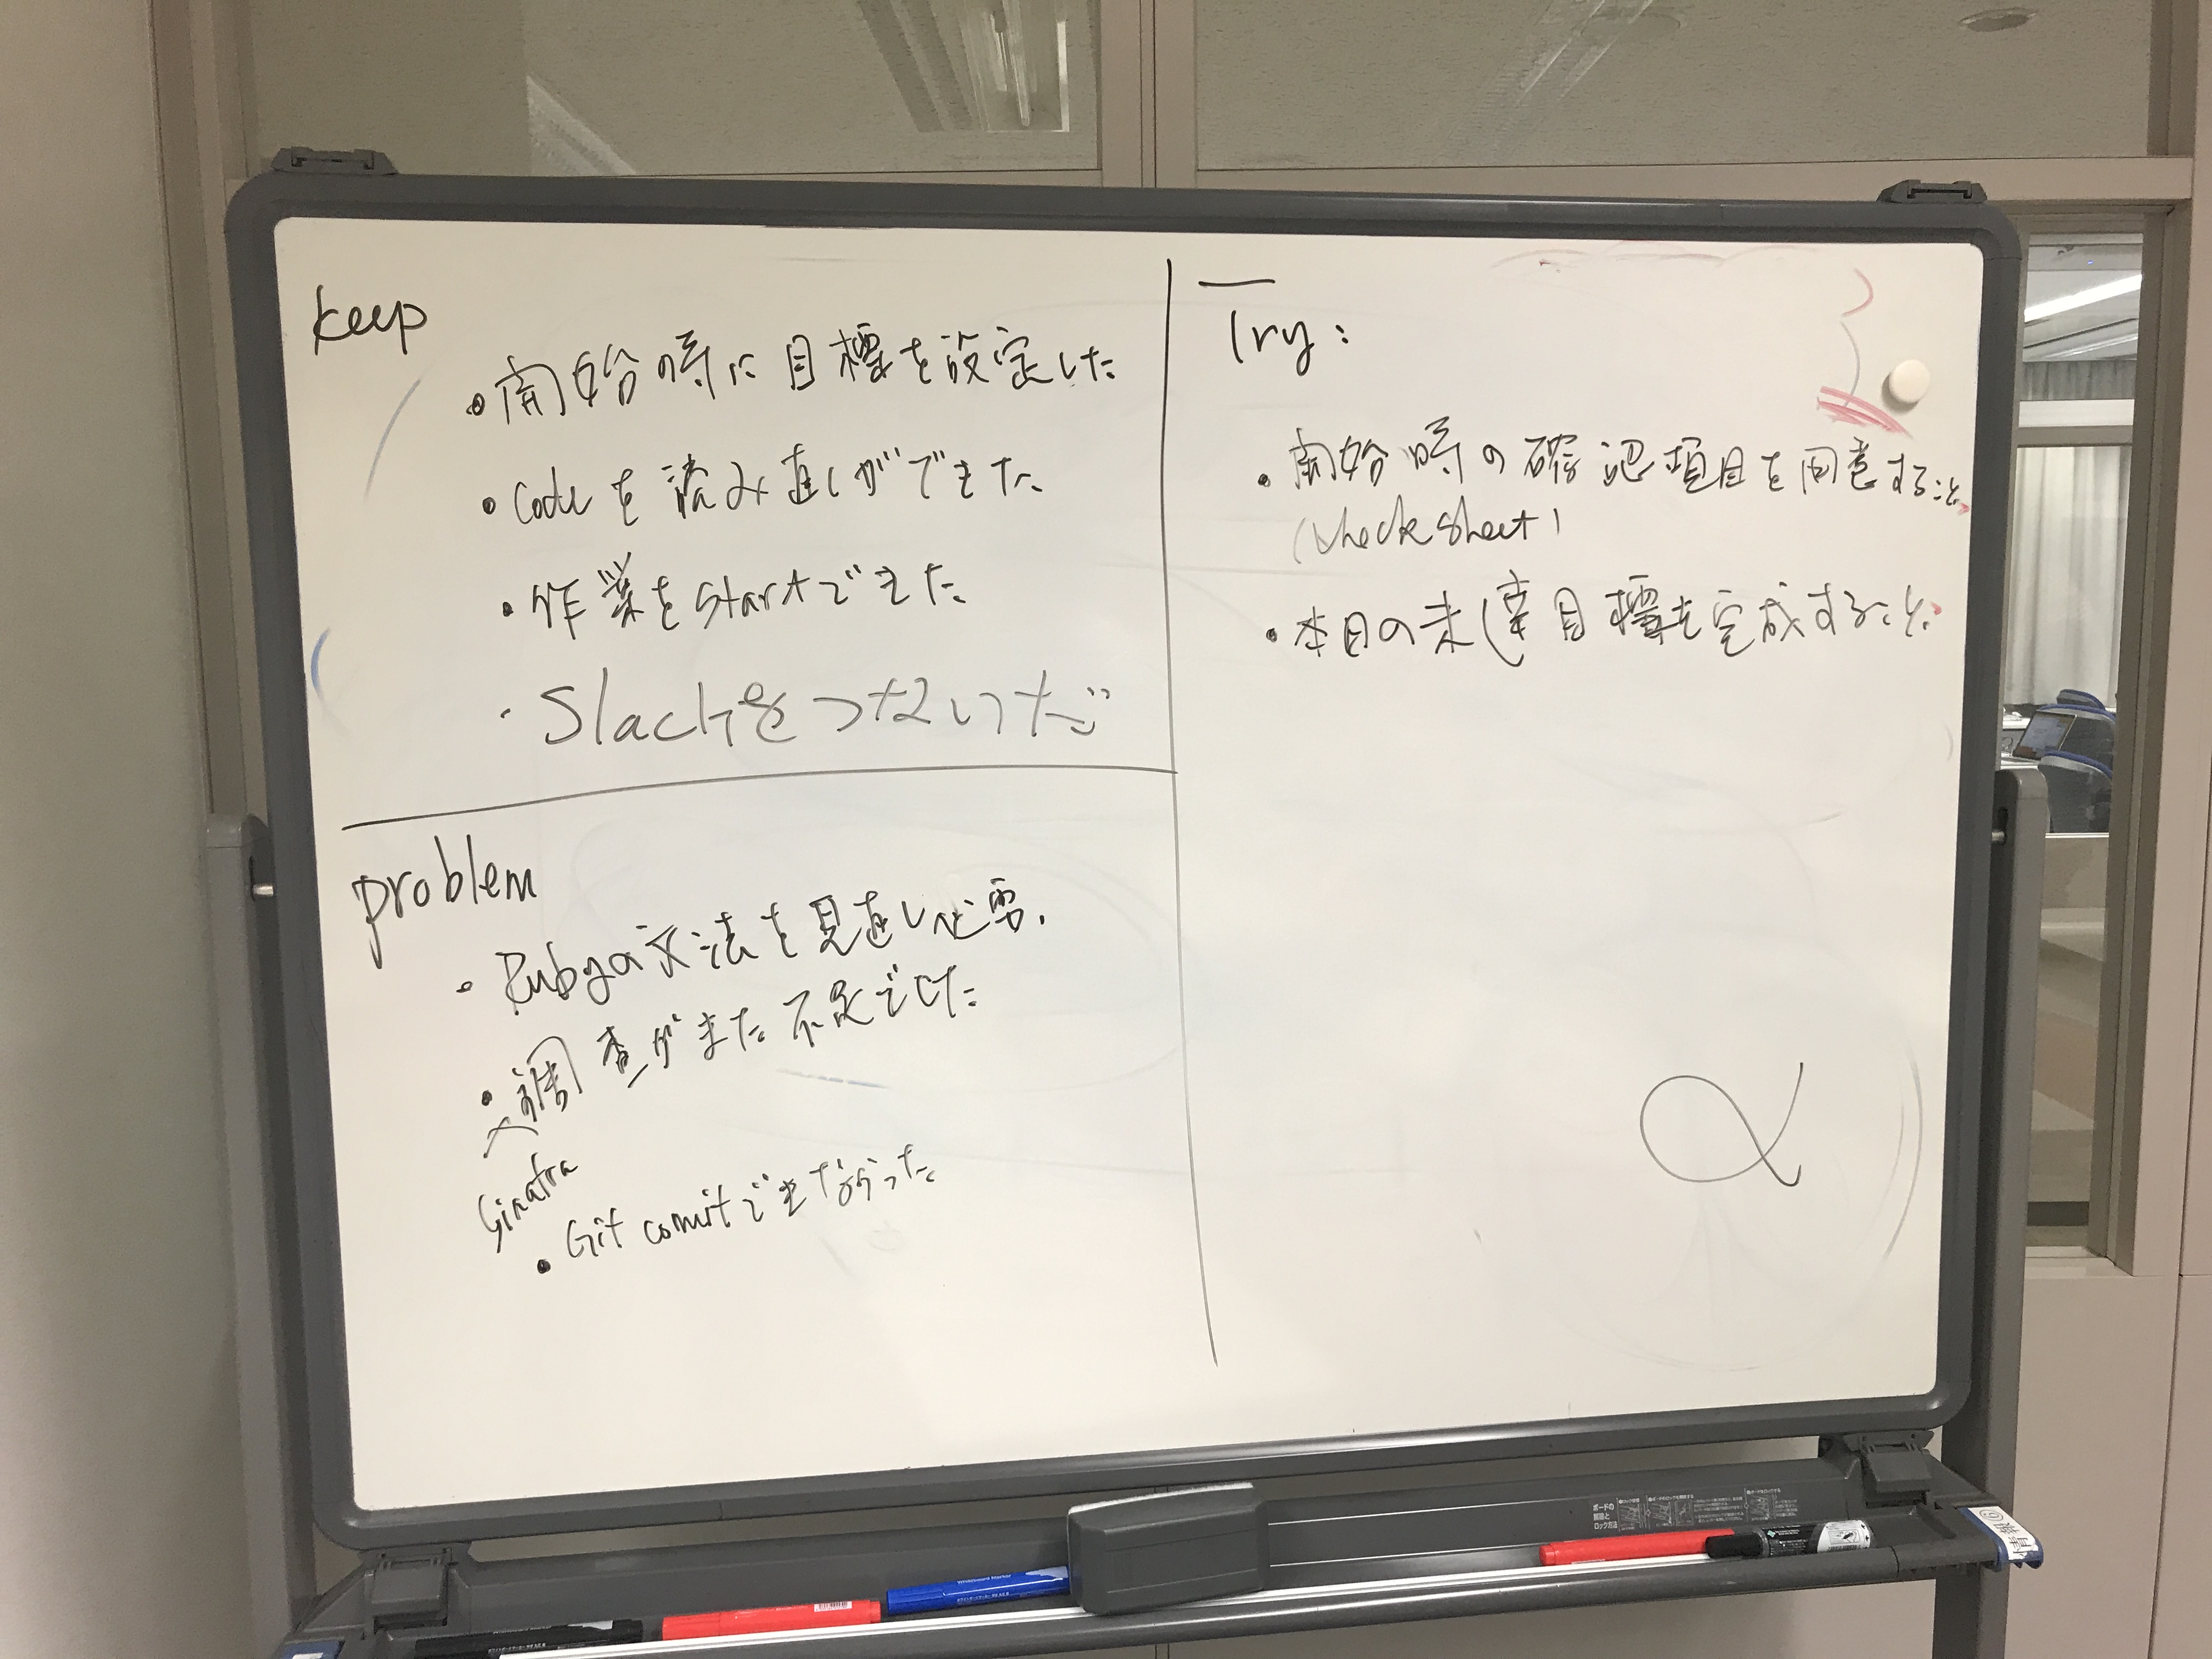 keep
・開始時に目標を設定した
・Codeを読み直しができた
・作業をstartできた
・Slackをつないだ
problem
・Rubyの文法を見直し必要.
・調査がまた不足でした
Sinatra
・Git comitできなかった
Try:
・開始時の確認項目を用意すること
(check sheet)
・本日の未達目標を完成すること
α
Whiteboard Marker
ボードの
解除と
ロック方法